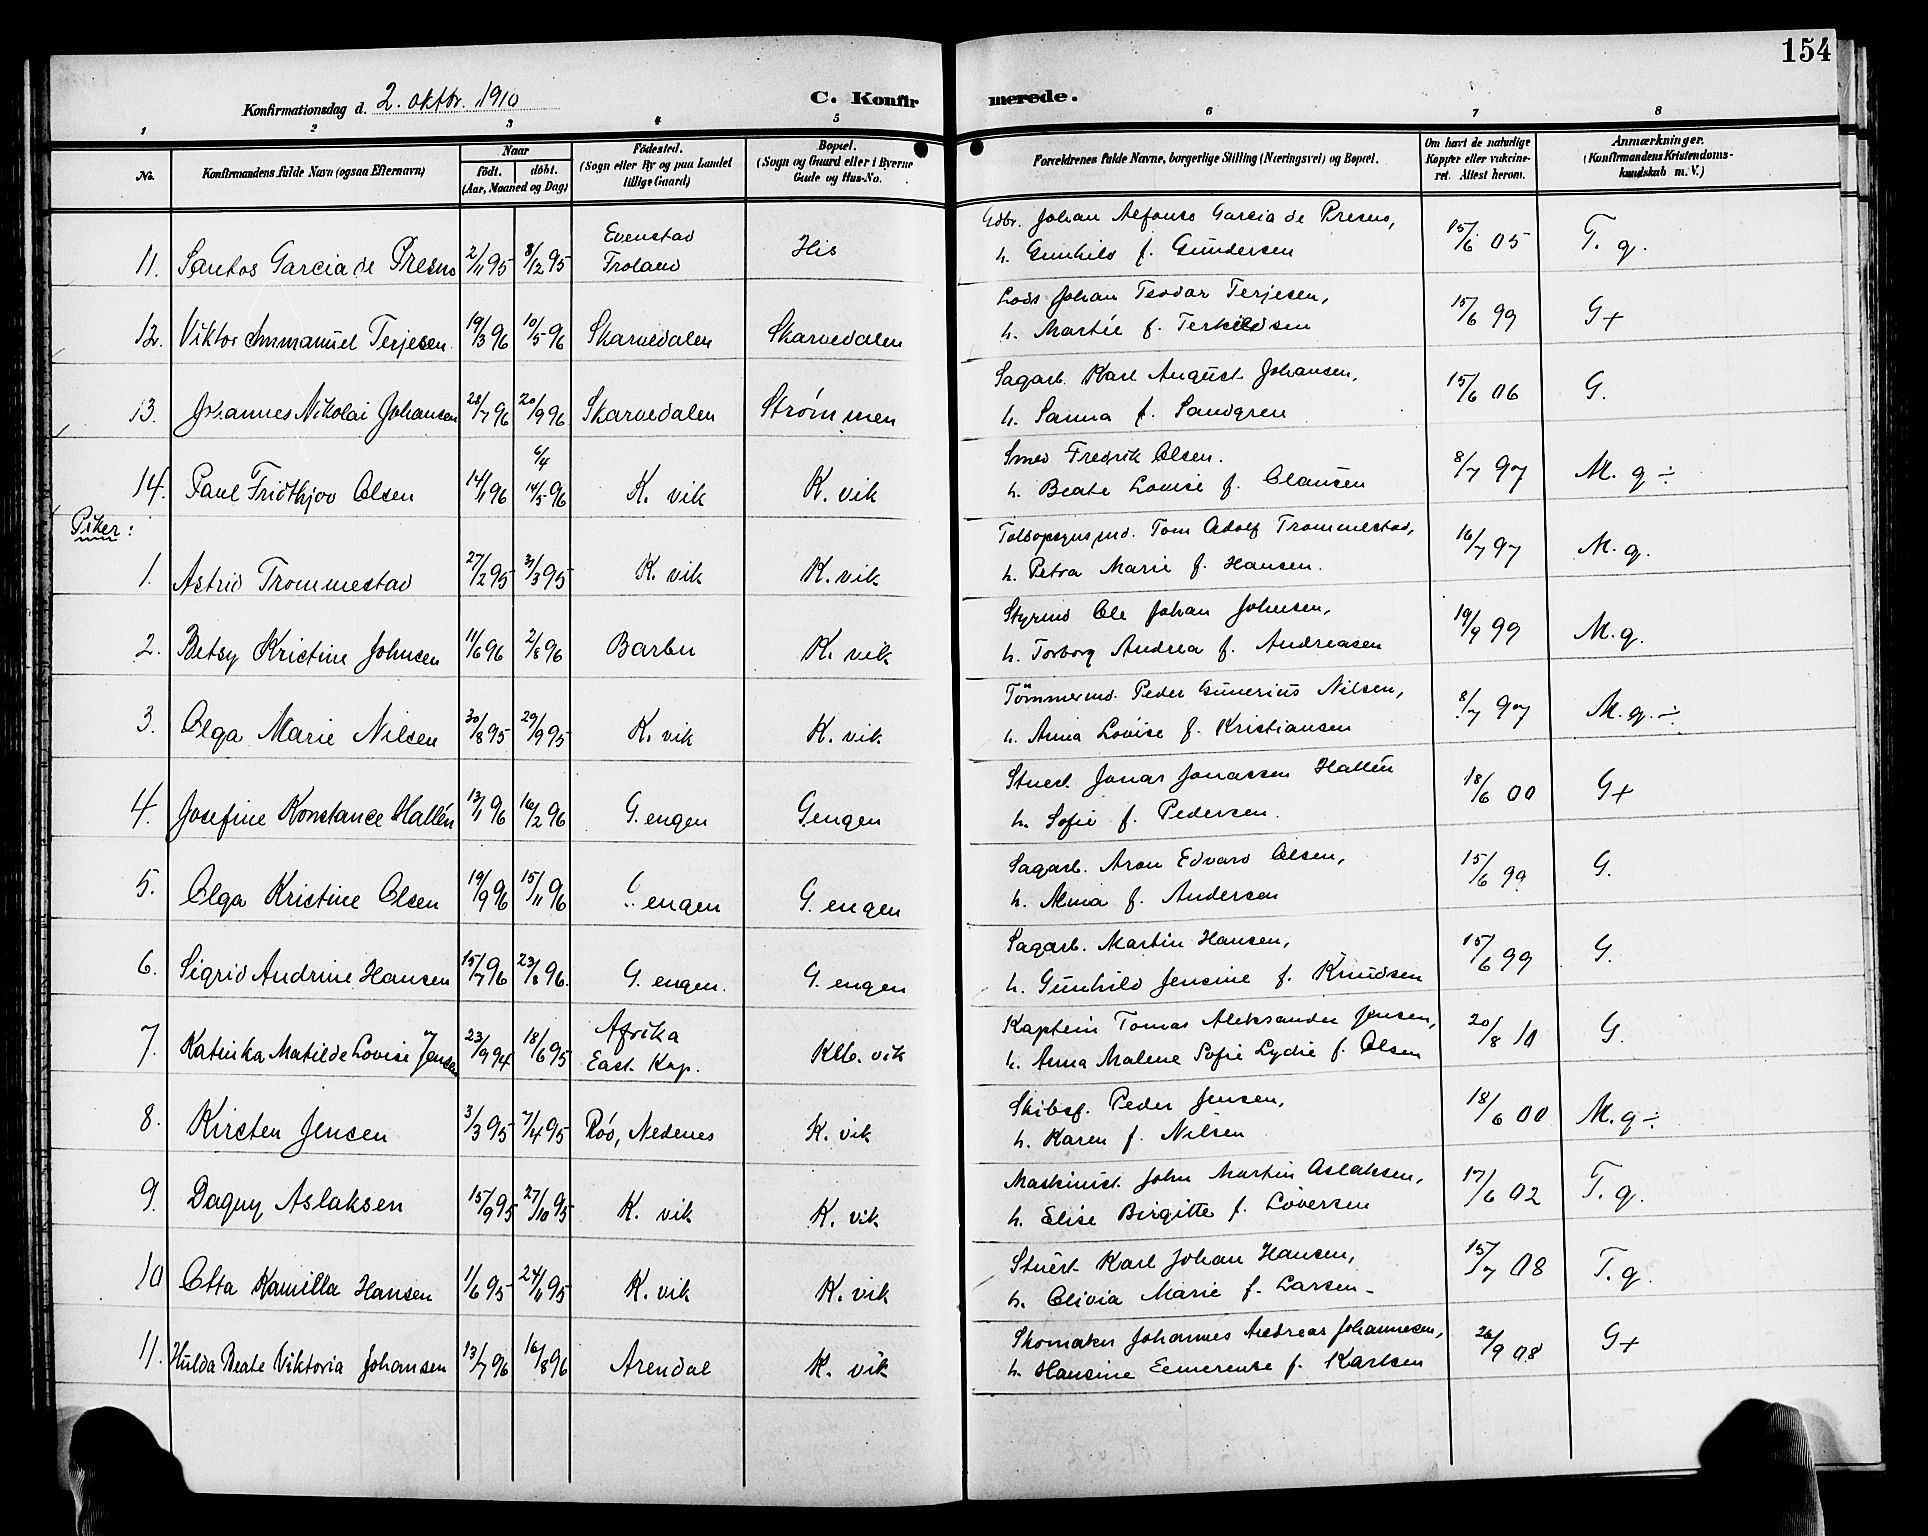 154
Konfirmationsdag d. 2. oktbr. 1910
C. Konfirmerede.
1 2 3 4 5 6 7 8
No.
Konfirmandens fulde Navn (ogsaa Efternavn)
Naar
födt. döbt.
(Aar, Maaned og Dag)
Födested.
(Sogn eller By og paa Landet tillige Gaard)
Bopæl.
(Sogn og Gaard eller i Byerne Gade og Hus-No.
Forældrenes fulde Navne, borgerlige Stilling (Næringsvei) og Bopæl.
Om havt de naturlige Kopper eller vakcineret. Attest herom.
Anmærkninger.
(Konfirmandens Kristendomskundskab m. V.)
11. Santos Garcia de Presno 2/11 95 8/12 95 Evenstad Froland His Gdbr. Johan Alfonso Garcia de Presno,
h. Gunhild f. Gundersen 15/6 05 T. g.
12. Viktor Immanuel Terjesen 19/3 96 10/5 96 Skarvedalen Skarvedalen Lods Johan Teodor Terjesen,
h. Martie f. Terkildsen 15/6 99 G+
13. Johannes Nikolai Johansen 28/7 96 20/9 96 Skarvedalen Strømmen Sagarb. Karl August Johansen,
h. Sanna f. Sandgren 15/6 06 G.
14. Paul Fridthjov Olsen 14/1 96 6/4 14/5 96 K. vik K. vik Smed Fredrik Olsen.
h. Beate Lovise f. Clausen 8/7 97 M. g ÷
Piker:
1. Astrid Trommestad 27/2 95 31/3 95 K. vik K. vik Toldopsynsmd. Tom Adolf Trommestad,
h. Petra Marie f. Hansen. 16/7 97 M. g.
2. Betsy Kristine Johnsen 11/6 96 2/8 96 Barbu K. vik Styrmd Ole Johan Johnsen,
h. Torborg Andrea f. Andreasen 19/9 99 M. g.
3. Olga Marie Nilsen 30/8 95 29/9 95 K. vik K. vik Tömmermd. Peder Gunerius Nilsen,
h. Anna Lovise f. Kristiansen 8/7 97 M. g. ÷
4. Josefine Konstance Hallén 13/1 96 16/2 96 G. engen G.engen Stuert. Jonas Jonassen Hallén
h. Sofie f. Pedersen. 18/6 00 G+
5. Olga Kristine Olsen 19/9 96 15/11 96 G. engen G. engen Sagarb. Aron Edvard Olsen,
h. Alma f. Andersen 15/6 99 G.
6. Sigrid Andrine Hansen 15/7 96 23/8 96. G. engen. G. engen Sagarb. Martin Hansen,
h. Gunhild Jensine f. Knudsen 15/6 99 G.
7. Katinka Matilde Lovise Jensen 23/9 94 18/6 95 Afrika East. Kap. Klb. vik Kaptein Tomas Aleksander Jensen,
h. Anna Malene Sofie Lydie f. Olsen 20/8 10 G.
8. Kirsten Jensen 3/3 95 7/4 95 Röd, Nedenes K. vik Skibsf. Peder Jensen,
h. Karen f. Nilsen 18/6 00 M. g ÷
9. Dagny Aslaksen 15/9 95 27/10 95 K. vik K. vik Maskinist. John Martin Aslaksen,
h. Elise Birgitte f. Loversen 17/6 02 T. g.
10 Otta Kamilla Hansen 1/6 95 24/11 95 K. vik K. vik Stuert Karl Johan Hansen,
h. Olivia Marie f. Larsen 15/7 08 T. g.
11. Hulda Beate Viktoria Johansen 13/7 96 16/8 96 Arendal K. vik Skomaker Johannes Andreas Johannesen,
h. Hansine Eemerense f. Karlsen 26/9 08 G+